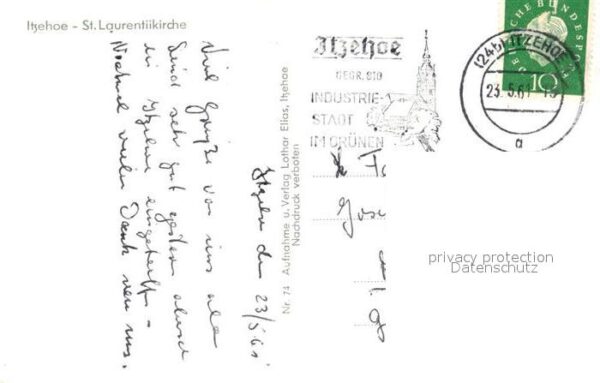 Itzehoe - St. Laurentiikirche
Viel Grüße von uns allen
Sind sehr gut gestern abend
in Itzehoe eingetroffen -
Nochmal vielen Dank von uns.
Itzehoe den 23/5.61
Nr. 74 Aufnahme u. Verlag Lothar Elias, Itzehoe
Nachdruck verboten
Itzehoe
GEGR. 810
INDUSTRIE-
STADT
IM GRÜNEN
DEUTSCHE BUNDESPOST
10
(24b) ITZEHOE
23.5.61
a
privacy protection
Datenschutz